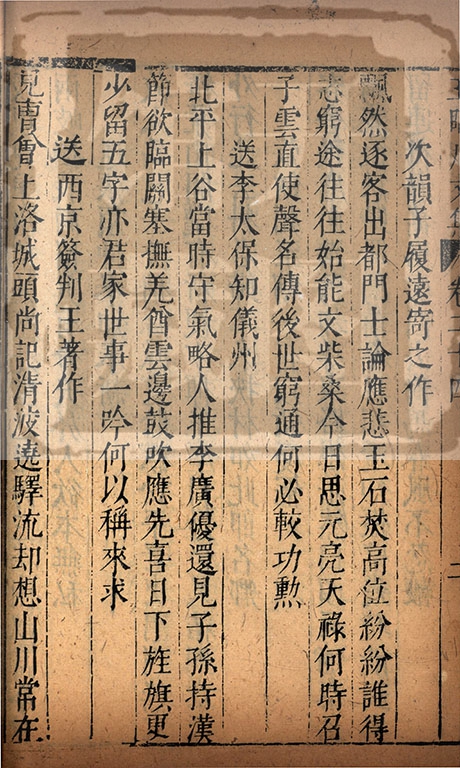 王臨川文集 卷二十四 二
次韻子履遠寄之作
飄然逐客出都門士論應悲玉石焚高位紛紛誰得
志窮途往往始能文柴桑今日思元亮天祿何時召
子雲直使聲名傳後世窮通何必較功勲
送李太保知儀州
北平上谷當時守氣略人推李廣優還見子孫持漢
節欲臨關塞撫羌酋雲邊鼓吹應先喜日下旌旗更
少留五字亦君家世事一吟何以稱來求
送西京簽判王著作
兒曹曾上洛城頭尚記清波遶驛流却想山川常在